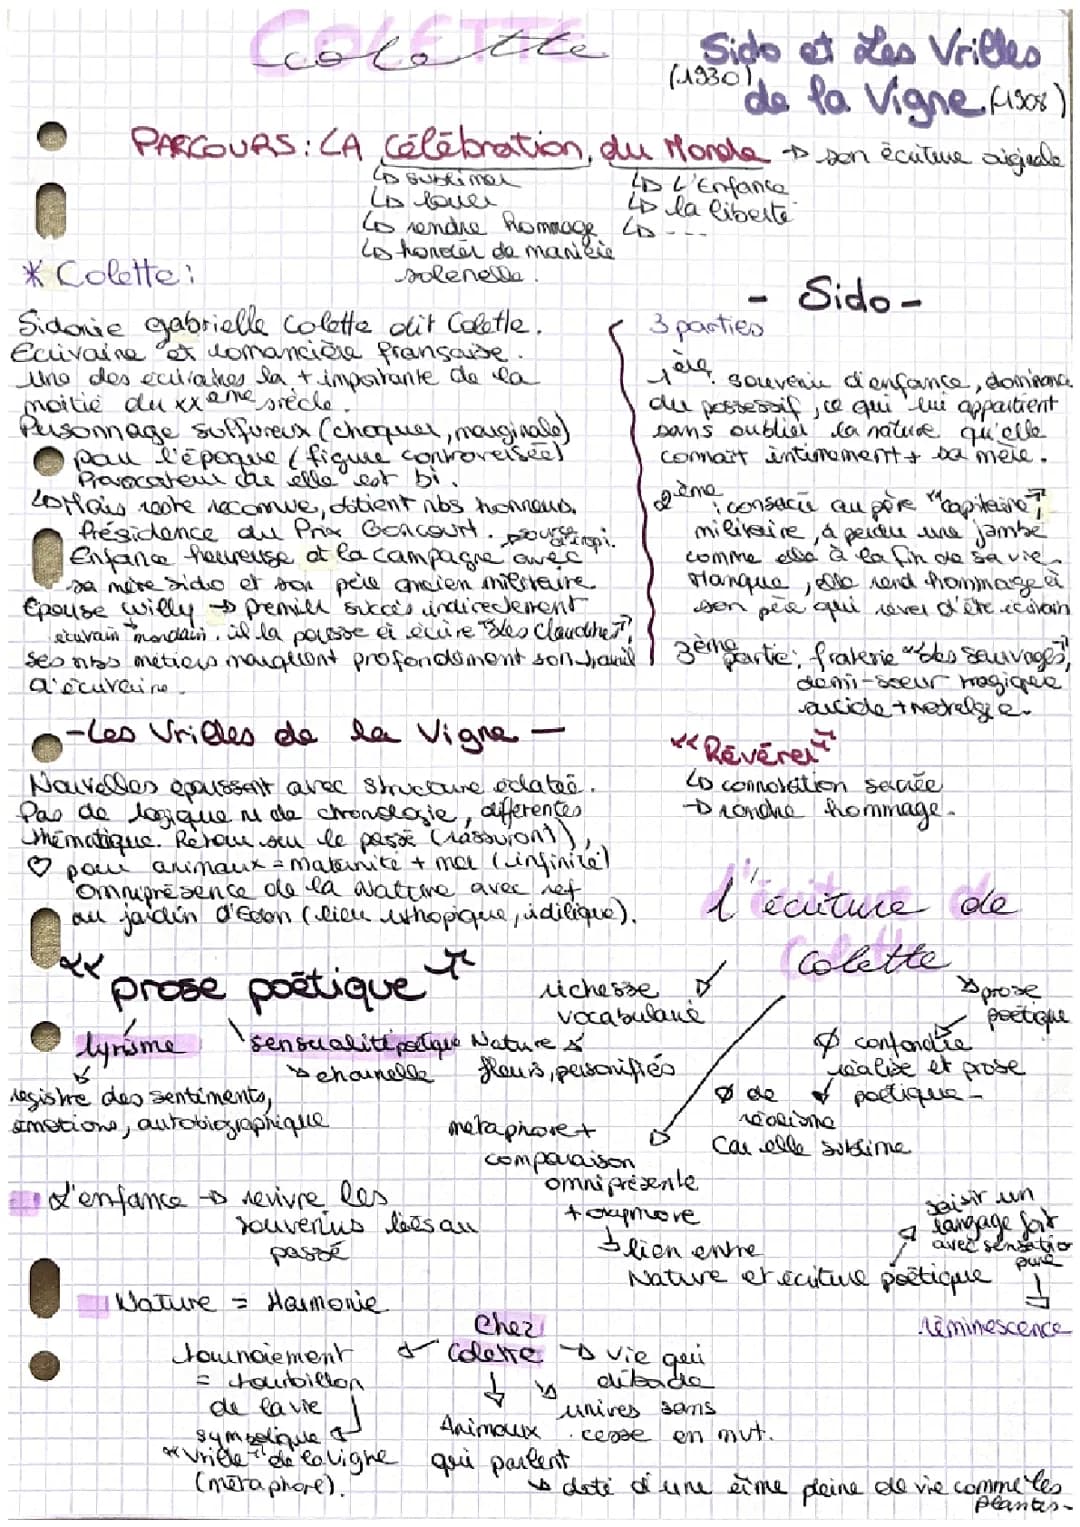 Colette
Sido et Les Vrilles
(1930)
de la Vigne (1908)
PARCOURS : LA Célébration du Monde → son écriture originale
↳ sublimer
↳ louer
↳ rendre hommage
↳ honorer de manière
solenelle.
↳ L'Enfance
↳ la liberté
↳ ---
* Colette :
Sidonie gabrielle Colette dit Colette.
Ecrivaine et romancière française.
Une des écrivaines la + importante de la
moitié du xxeme siècle.
Personnage sulfureux (choquer, marginale)
pour l'époque (figure controversée)
Provocateur car elle est bi.
↳ Mais reste reconnue, obtient nbs honneurs.
Présidence du Prix Goncourt.
Enfance heureuse, à la campagne avec
sa mère Sido et son père ancien militaire
Epouse Willy → premier succès indirectement
écrivain mondain, il la pousse à écrire "les Claudines",
ses nbs métiers marquent profondément son travail
d'écrivaine.
- Sido -
3 parties
1ère : souvenir d'enfance, dominance
du possessif, ce qui lui appartient
sans oublier la nature qu'elle
connaît intimement + sa mère.
2ème : consacré au père "capitaine",
militaire, a perdu une jambe
comme elle à la fin de sa vie.
Manque, elle rend hommage à
son père qui rêver d'être écrivain
3ème partie : fraterie "les sauvages",
demi-soeur tragique
suicide + nostalgie.
- Les Vrilles de la Vigne -
Nouvelles épuissant avec structure éclatée.
Pas de logique ni de chronologie, différentes
thématique. Retour sur le passé (rassurant),
♡ pour animaux = maternité + mer (infinité)
Omniprésence de la Nature avec ref
au jardin d'Eden (lieu uthopique, idilique).
"Révérer"
↳ connotation sacrée
→ rendre hommage.
"prose poétique"
lyrisme
registre des sentiments,
émotions, autobiographique
sensualité poétique
↘ charnelle
l'écriture de
Colette
richesse
vocabulaire
Nature
fleurs, personifiés
métaphore +
comparaison
omniprésente
+ oxymore
↳ lien entre
Nature et écriture poétique
prose
poétique
Ø confondre
réalise et prose
poétique -
Ø de
réalisme
Car elle sublime
saisir un
langage fait
avec sensation
pure
réminescence
L'enfance → revivre les
souvenirs liés au
passé
Nature = Harmonie
Chez
Colette → vie qui
déborde
univers sans
cesse en mvt.
tournoiement
= tourbillon
de la vie
symbolique
"vrille" de la vigne
(métaphore).
Animaux
qui parlent
↘ doté d'une âme pleine de vie comme les
plantes.